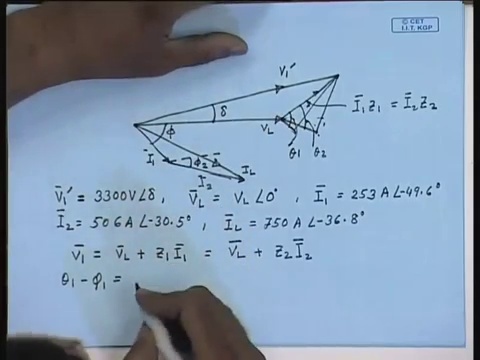 © CET
I.I.T. KGP
V̄₁′
δ
V̄L
Ī₁Z₁ = Ī₂Z₂
ϕ
Ī₁
ϕ₂
Ī₂
ĪL
θ₁ θ₂
V̄₁′ = 3300V∠δ , V̄L = VL∠0° , Ī₁ = 253A∠-49.6°
Ī₂ = 506A∠-30.5° , ĪL = 750A∠-36.8°
V̄₁ = V̄L + Z₁Ī₁ = V̄L + Z₂Ī₂
θ₁ - ϕ₁ =